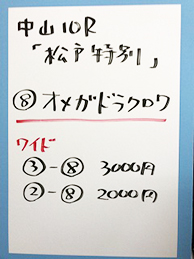 中山10R
「松戸特別」
⑧オメガドラクロワ
ワイド
③-⑧ 3000円
②-⑧ 2000円